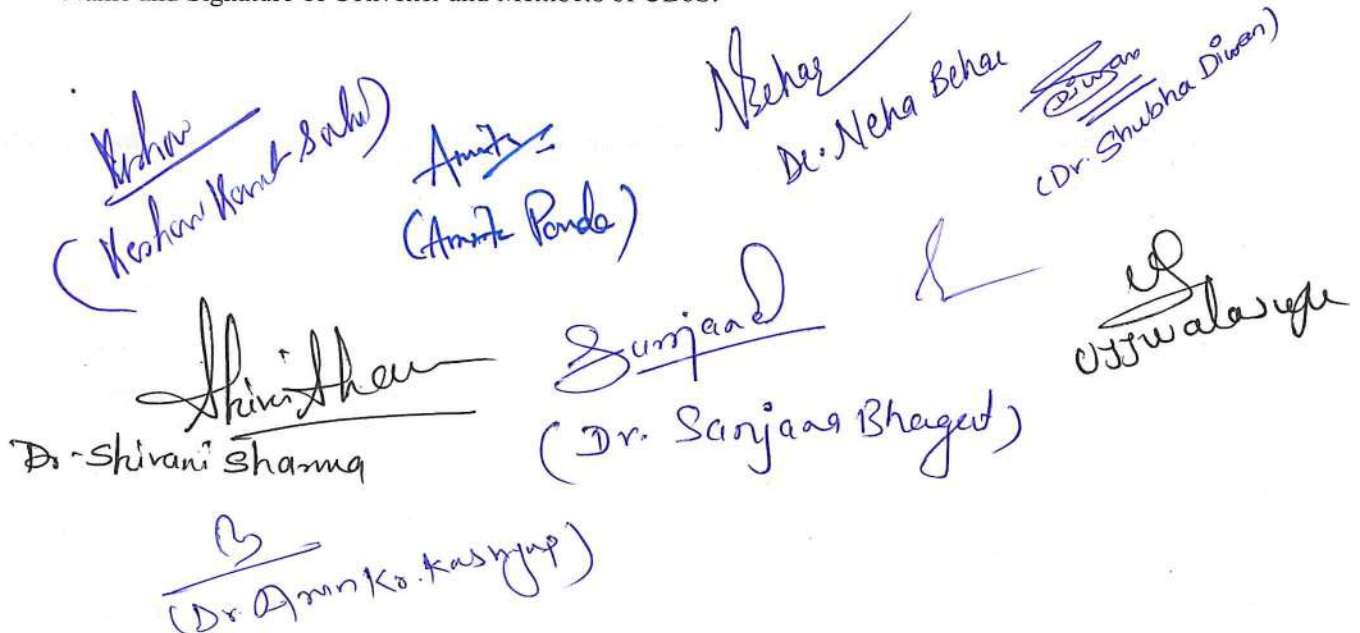 Name and Signature of Convener and Members of CBoS:
Keshav
(Keshav Kant Sahu)
Amit
(Amit Panda)
NBehar
Dr. Neha Behar
Diwan
(Dr. Shubha Diwan)
Dr. Shivani Sharma
Sanjana
(Dr. Sanjana Bhagat)
(Dr. Arun Kr. Kashyap)